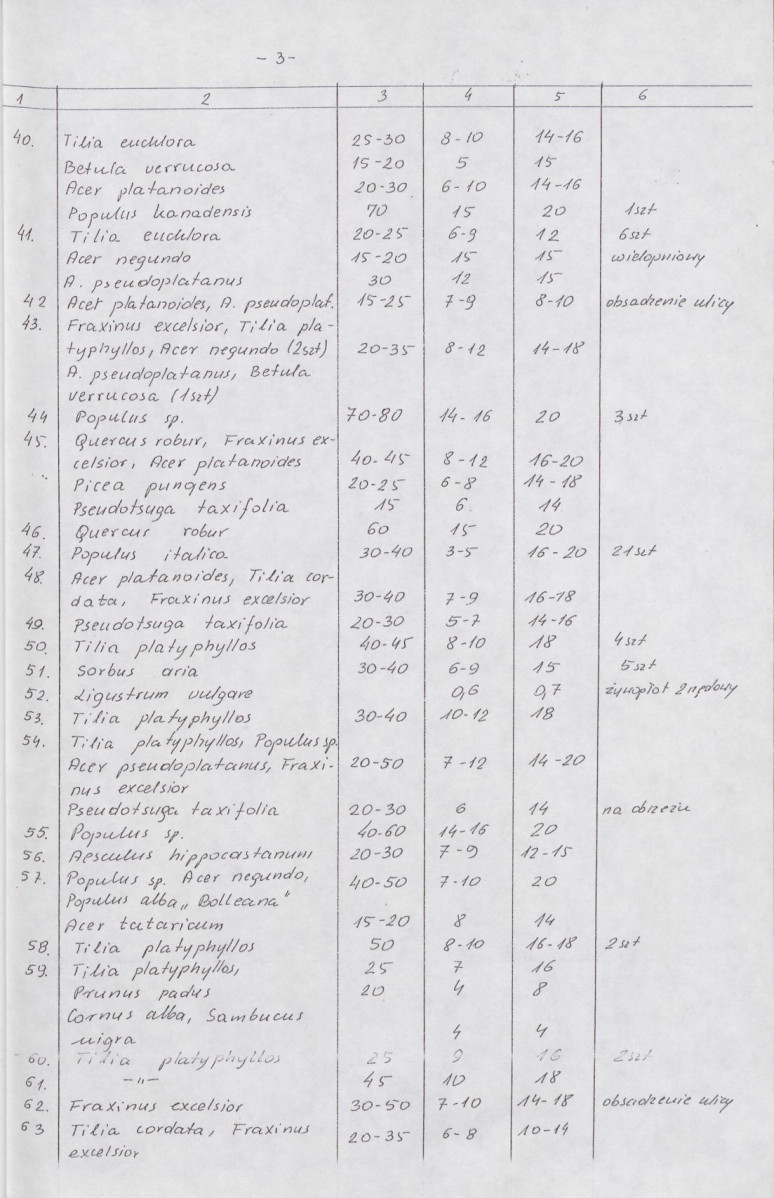 - 3 -
1 2 3 4 5 6
40. Tilia euchlora 25-30 8-10 14-16
Betula verrucosa 15-20 5 15
Acer platanoides 20-30 6-10 14-16
Populus kanadensis 70 15 20 1szt
41. Tilia euchlora 20-25 6-9 12 6szt
Acer negundo 15-20 15 15 wielopniowy
A. pseudoplatanus 30 12 15
42 Acet platanoides, A. pseudoplat. 15-25 7-9 8-10 obsadzenie ulicy
43. Fraxinus excelsior, Tilia pla-
typhyllos, Acer negundo (2szt) 20-35 8-12 14-18
A. pseudoplatanus, Betula
verrucosa (1szt)
44 Populus sp. 70-80 14-16 20 3szt
45. Quercus robur, Fraxinus ex-
celsior, Acer platanoides 40-45 8-12 16-20
Picea pungens 20-25 6-8 14-18
Pseudotsuga taxifolia 15 6 14
46. Quercus robur 60 15 20
47. Populus italica 30-40 3-5 16-20 21szt
48. Acer platanoides, Tilia cor-
data, Fraxinus excelsior 30-40 7-9 16-18
49. Pseudotsuga taxifolia 20-30 5-7 14-16
50. Tilia platyphyllos 40-45 8-10 18 4szt
51. Sorbus aria 30-40 6-9 15 5szt
52. Ligustrum vulgare 0,6 0,7 żywopłot 2 rzędowy
53. Tilia platyphyllos 30-40 10-12 18
54. Tilia platyphyllos, Populus sp.
Acer pseudoplatanus, Fraxi- 20-50 7-12 14-20
nus excelsior
Pseudotsuga taxifolia 20-30 6 14 na obrzeżu
55. Populus sp. 40-60 14-16 20
56. Aesculus hippocastanum 20-30 7-9 12-15
57. Populus sp. Acer negundo, 40-50 7-10 20
Populus alba „Bolleana"
Acer tataricum 15-20 8 14
58. Tilia platyphyllos 50 8-10 16-18 2szt
59. Tilia platyphyllos, 25 7 16
Prunus padus 20 4 8
Cornus alba, Sambucus
nigra 4 4
60. Tilia platyphyllos 25 9 16 2szt
61. -"- 45 10 18
62. Fraxinus excelsior 30-50 7-10 14-18 obsadzenie ulicy
63 Tilia cordata, Fraxinus 20-35 6-8 10-14
excelsior